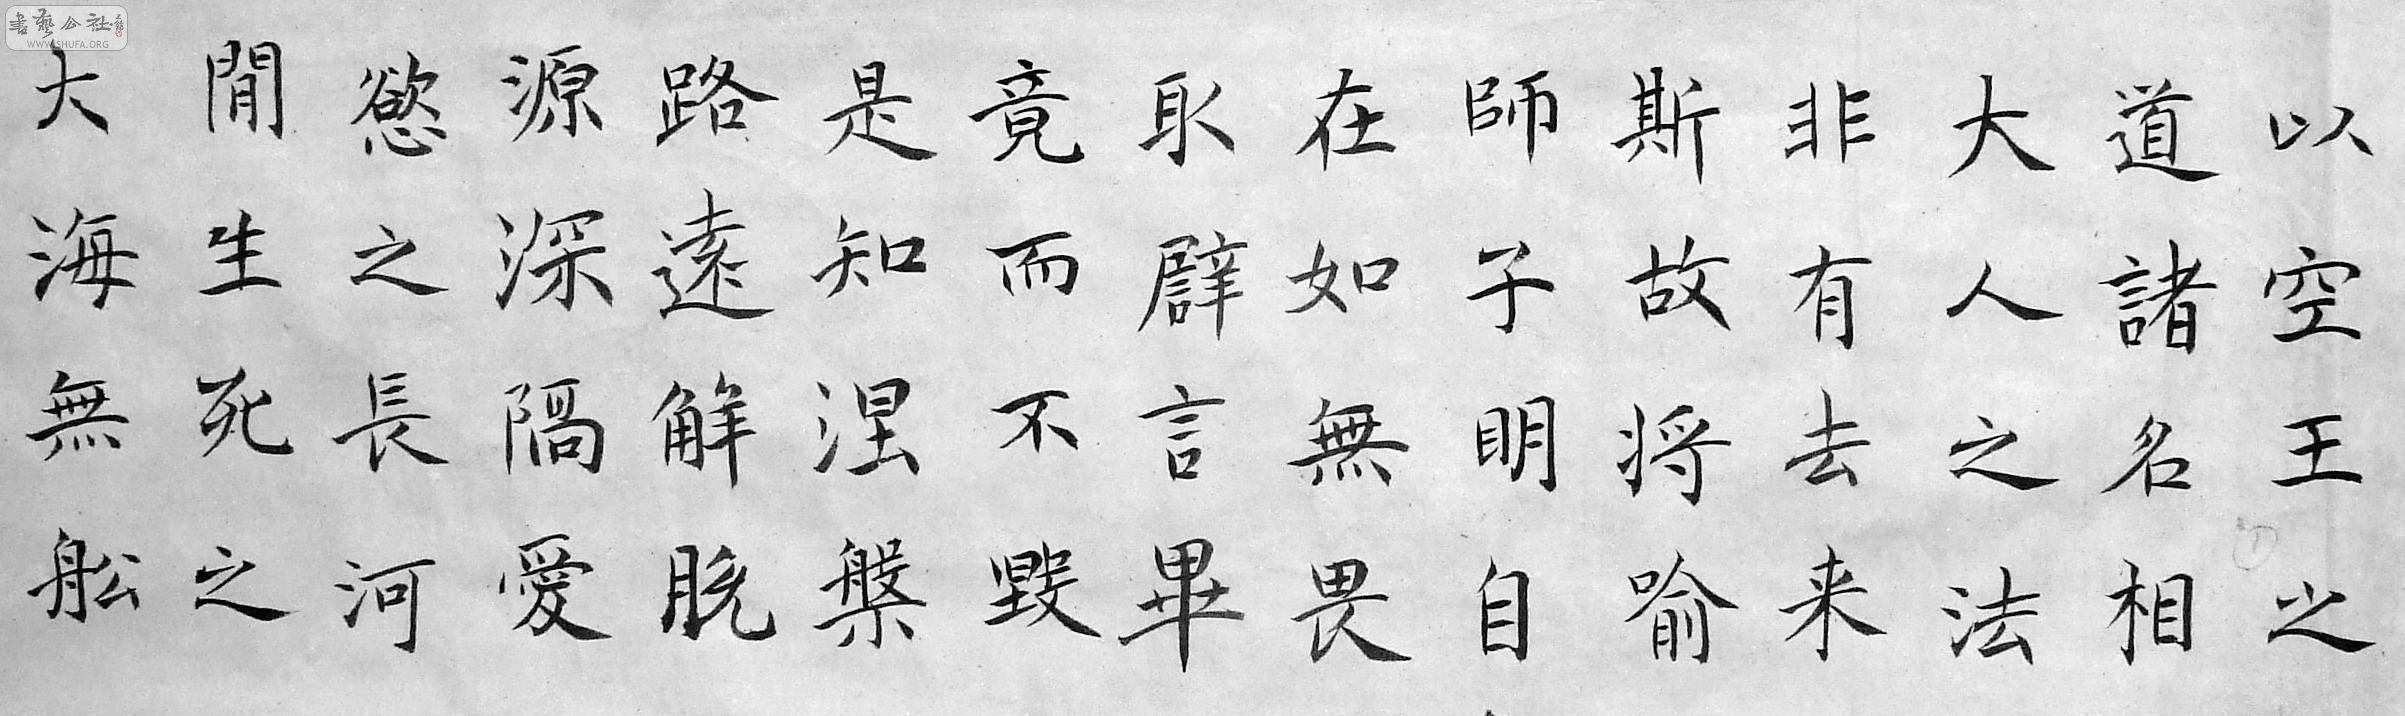 以空王之
道諸名相
大人之法
非有去来
斯故将喻
師子明自
在如無畏
取譬言畢
竟而不毀
是知涅槃
路遠解脱
源深隔愛
慾之長河
閒生死之
大海無舩
書藝公社
WWW.SHUFA.ORG